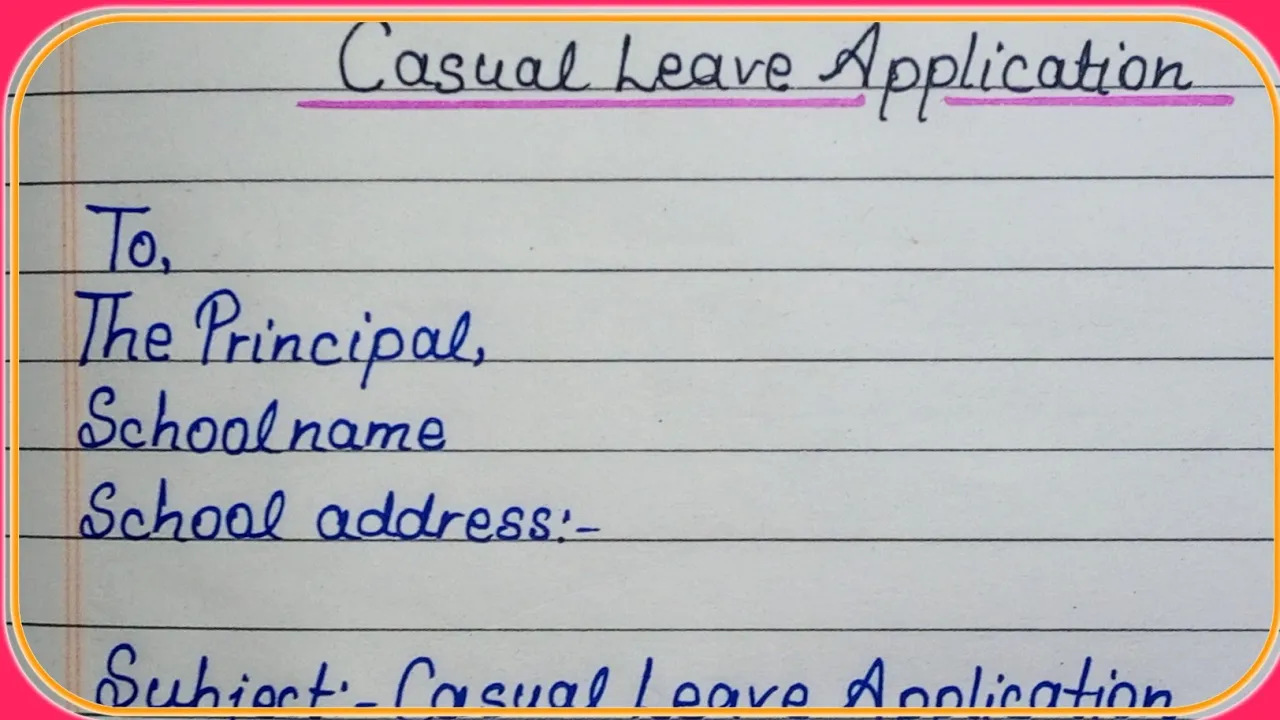 Casual Leave Application
To,
The Principal,
School name
School address:-
Subject:- Casual Leave Application